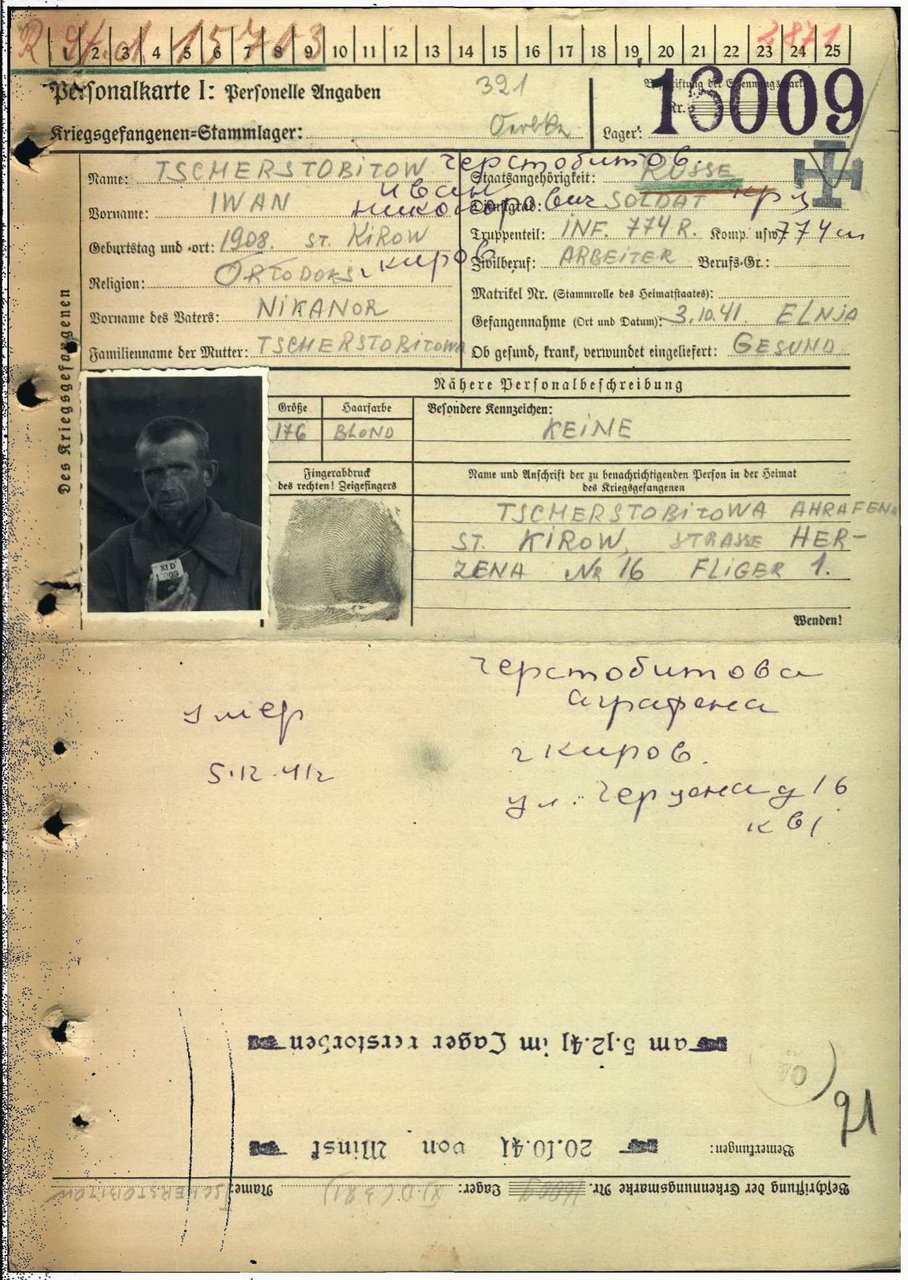 R St. d. 15703 2871
2 3 4 5 6 7 8 9 10 11 12 13 14 15 16 17 18 19 20 21 22 23 24 25
Personalkarte I: Personelle Angaben
321
Kriegsgefangenen-Stammlager: Oerbke
Beschriftung der Erkennungsmarke
Nr.
16009
Lager:
Des Kriegsgefangenen
Name: TSCHERSTOBITOW Черстобитов
Vorname: IWAN Иван
Никонорович
Geburtstag und -ort: 1908. ST. KIROW
г Киров
Religion: ORTODOKS
Vorname des Vaters: NIKANOR
Familienname der Mutter: TSCHERSTOBITOWA
Staatsangehörigkeit: RUSSE
Dienstgrad: SOLDAT кр-ц
Truppenteil: INF. 774 R. Komp. usw. 774 сп
Zivilberuf: ARBEITER Berufs-Gr.:
Matrikel Nr. (Stammrolle des Heimatstaates):
Gefangennahme (Ort und Datum): 3.10.41. ELNJA
Ob gesund, krank, verwundet eingeliefert: GESUND
Nähere Personalbeschreibung
Größe Haarfarbe Besondere Kennzeichen:
176 BLOND KEINE
Fingerabdruck
des rechten! Zeigefingers
Name und Anschrift der zu benachrichtigenden Person in der Heimat
des Kriegsgefangenen
TSCHERSTOBITOWA AHRAFENA
ST. KIROW, STRASSE HER-
ZENA NR 16 FLIGER 1.
Wenden!
XI D
Черстобитова
Аграфена
г Киров.
ул. Герцена д 16
кв 1
умер
5.12.41г
am 5.12.41 im Lager verstorben
91
Bemerkungen: 20.10.41 von Minsk
Beschriftung der Erkennungsmarke Nr. Lager: XI D (321) Name: TSCHERSTOBITOW